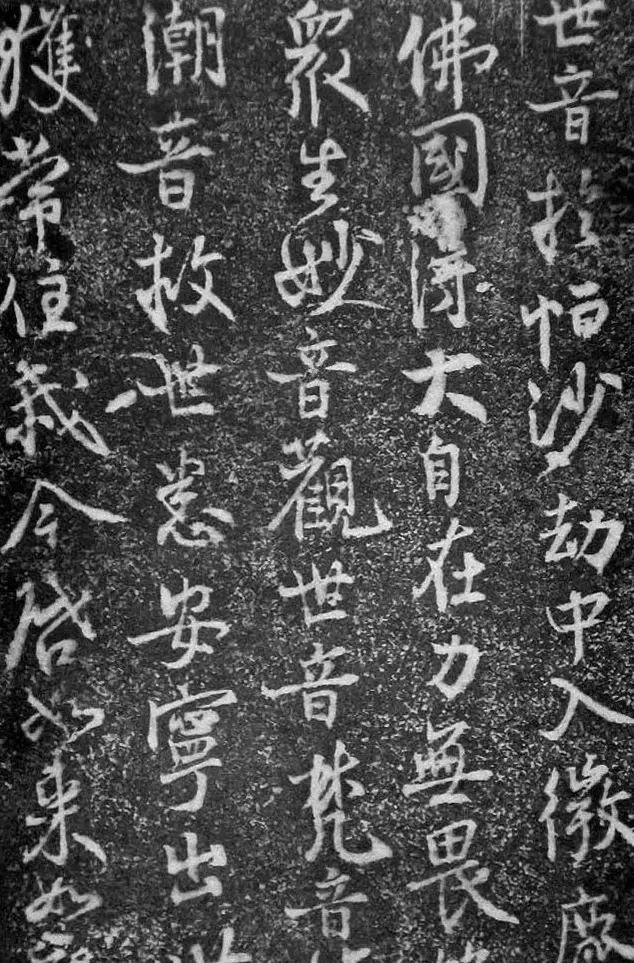 世音於恒沙劫中入微塵
佛國得大自在力無畏
衆生妙音觀世音梵音
潮音救世悉安寧出
獲常住我今啓如來如